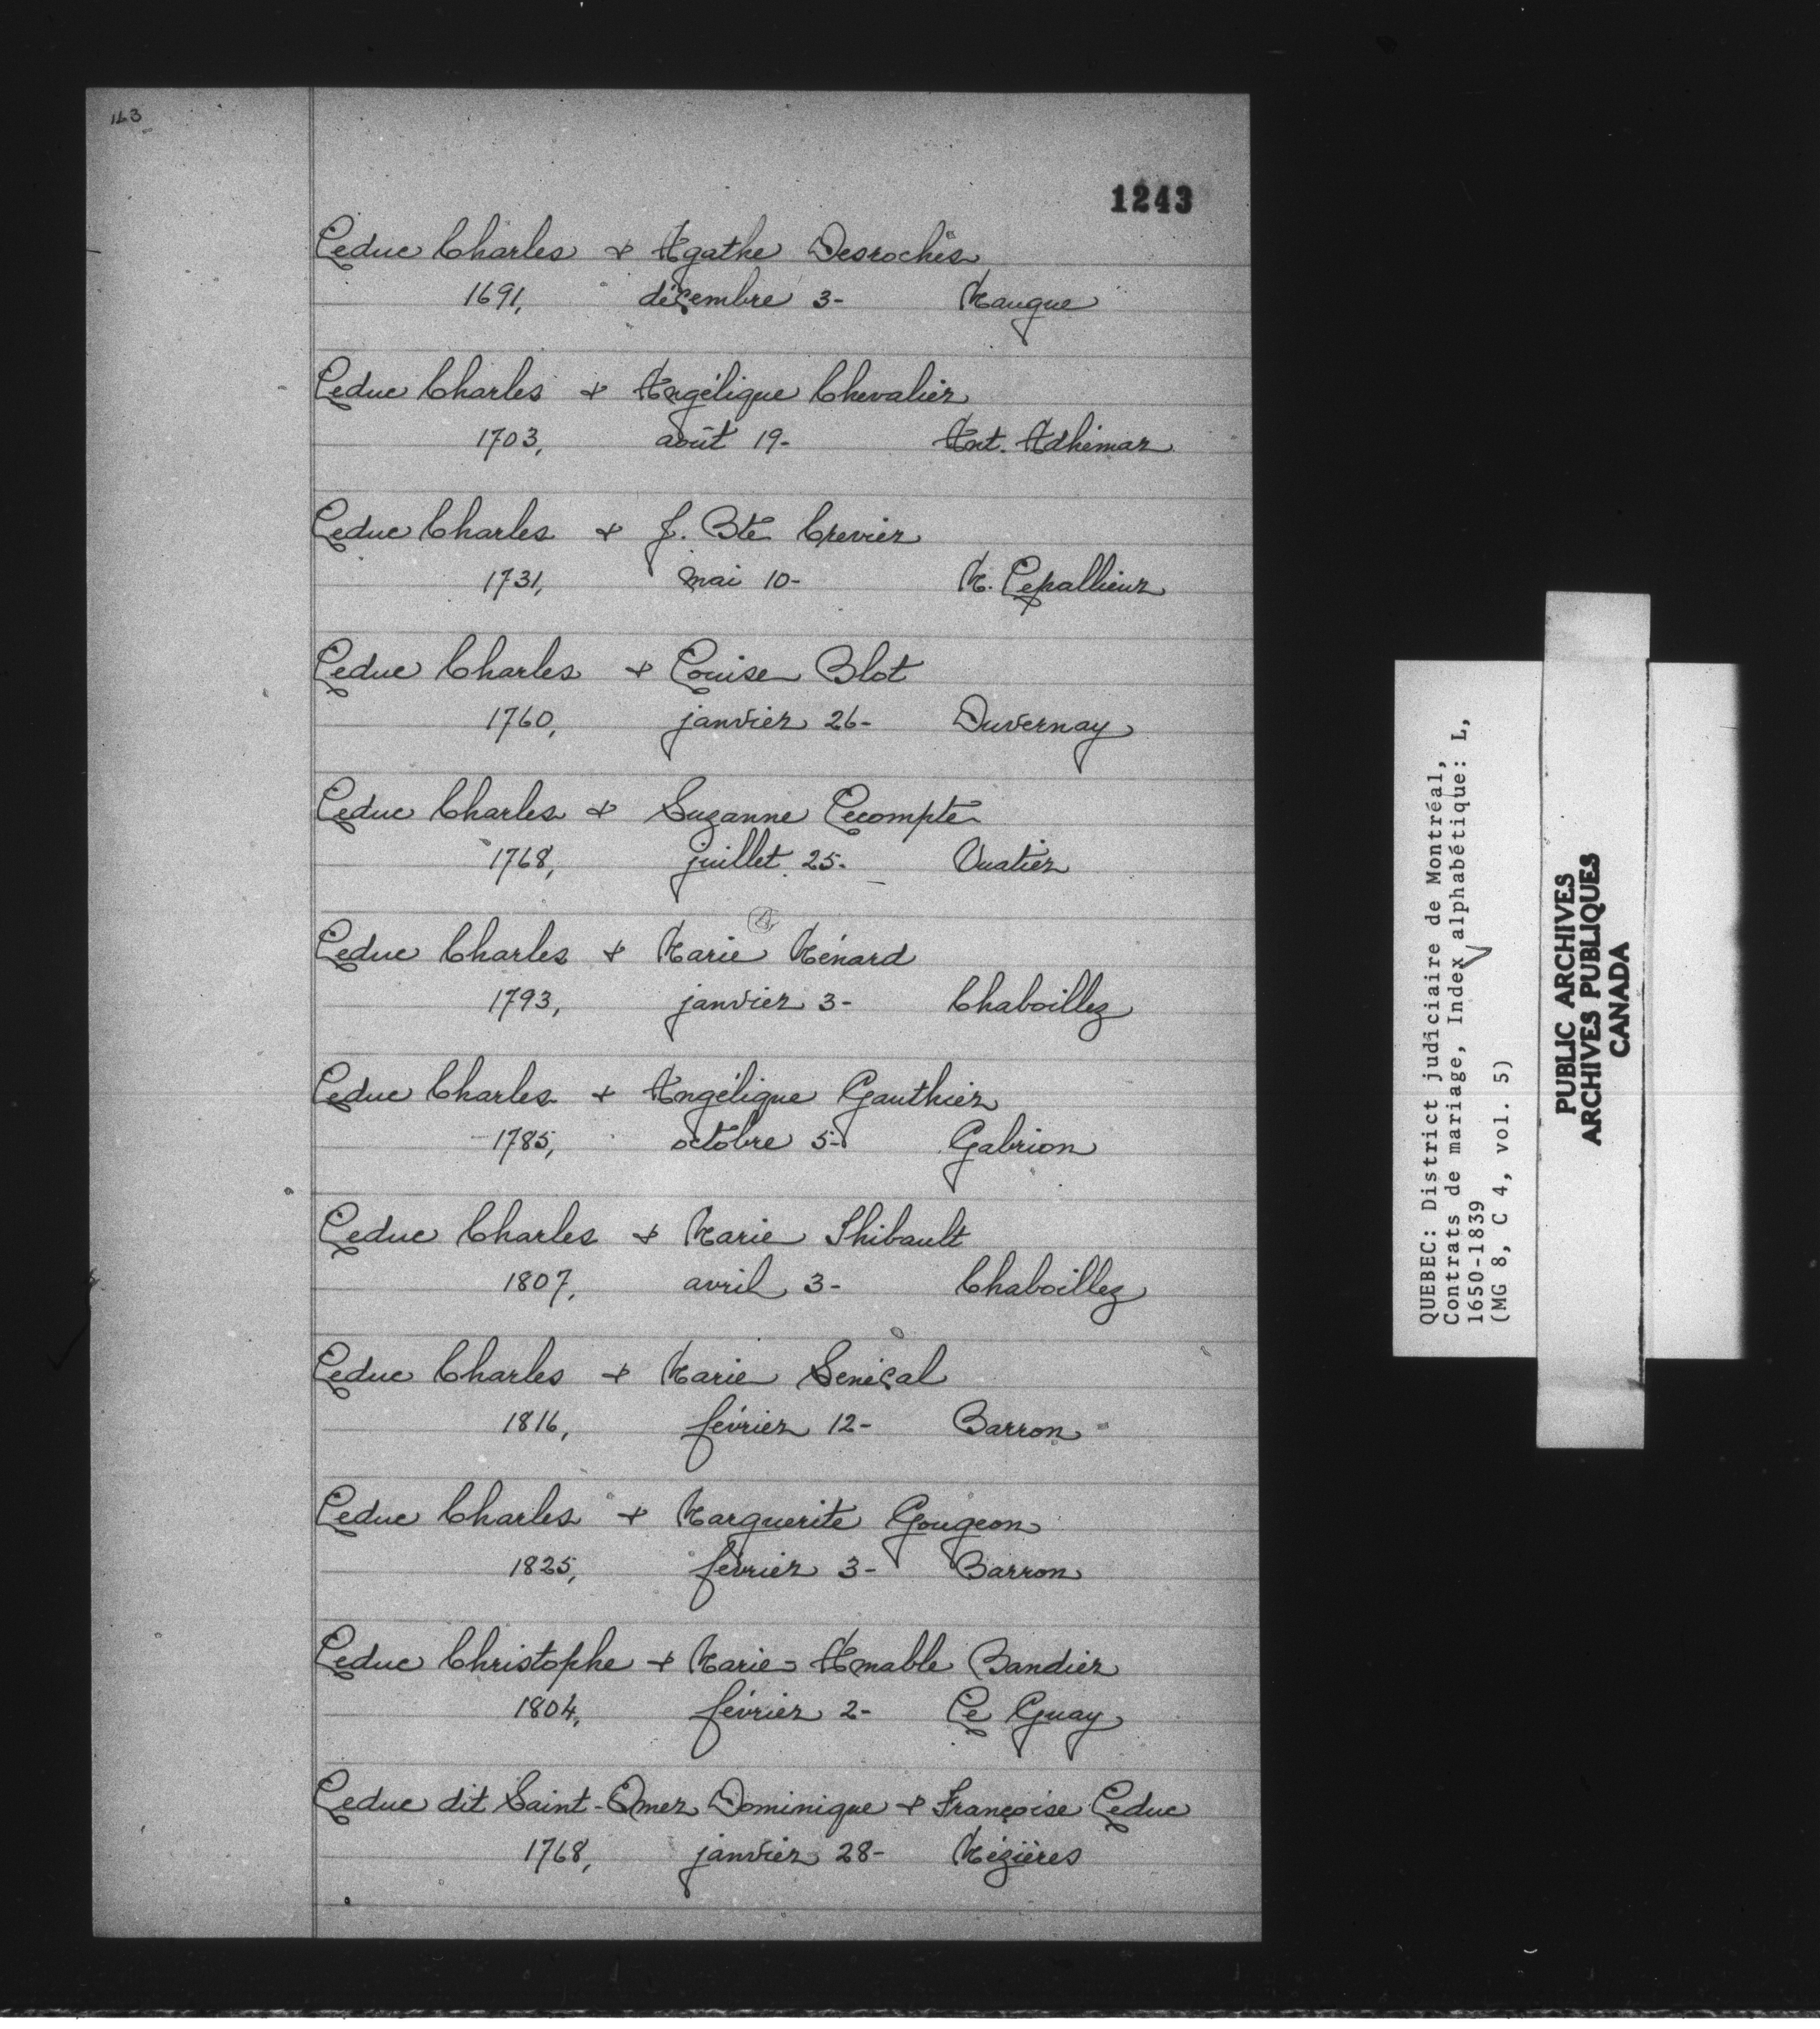 163
1243
Leduc Charles & Agathe Desroches
1691, décembre 3- Maugue
Leduc Charles & Angélique Chevalier
1703, août 19- Ant. Adhémar
Leduc Charles & J. Bte Crevier
1731, mai 10- M. Lepallieur
Leduc Charles & Louise Blot
1760, janvier 26- Duvernay
Leduc Charles & Suzanne Lecompte
1768, juillet 25- Vuatier
Leduc Charles & Marie Ménard
1793, janvier 3- Chaboillez
Leduc Charles & Angélique Gauthier
1785, octobre 5- Gabrion
Leduc Charles & Marie Thibault
1807, avril 3- Chaboillez
Leduc Charles & Marie Senéçal
1816, février 12- Barron
Leduc Charles & Marguerite Gougeon
1825, février 3- Barron
Leduc Christophe & Marie-Amable Bandier
1804, février 2- Le Guay
Leduc dit Saint-Omer Dominique & Françoise Leduc
1768, janvier 28- Mézières
QUEBEC: District judiciaire de Montréal,
Contrats de mariage, Index alphabétique: L,
1650-1839
(MG 8, C 4, vol. 5)
PUBLIC ARCHIVES
ARCHIVES PUBLIQUES
CANADA